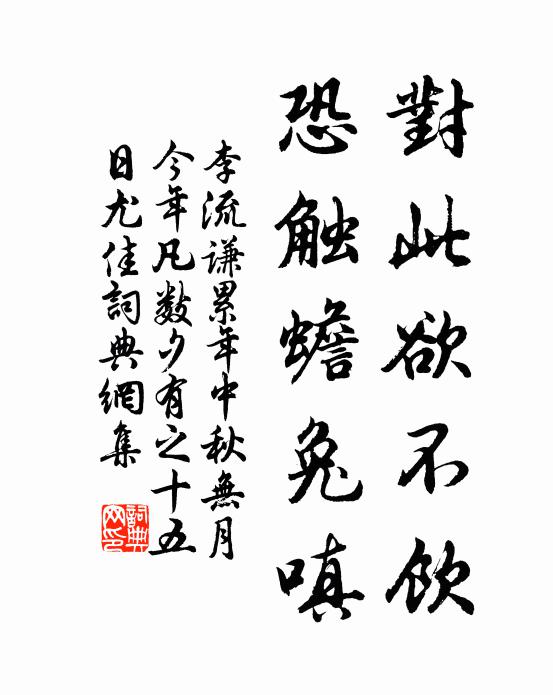 對此欲不飲
恐触蟾兔嗔
李流謙累年中秋無月
今年凡数夕有之十五
日尤佳詞典網集
詞典网印